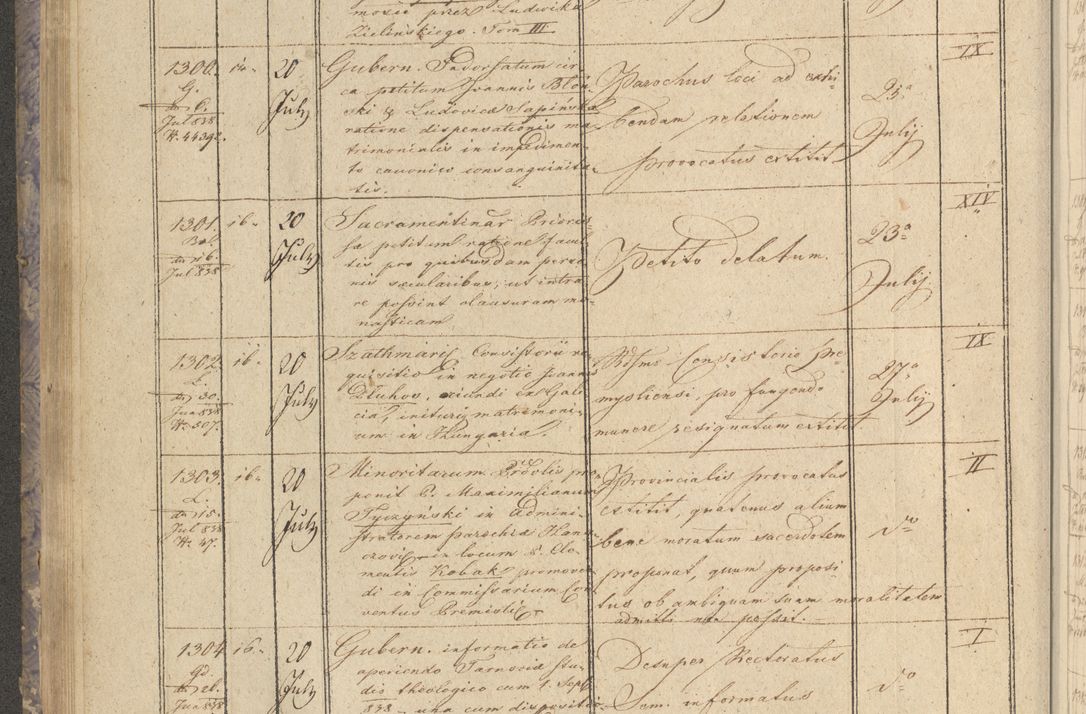 mosie przez Ludovika
Zielińskiego. Tom III.
IX
1300. 14. 20 July
G.
Jul 838
N. 44392.
Gubern.
ca petitum Joannis Błoń-
ski & Ludovica Sapińska
ratione dispensationis ma-
trimonialis in impedimen-
to canonico consanguinita-
tis.
Parochus loci ad exhi-
bendam relationem
provocatus extitit
25a July
XIV
1301. 16. 20 July
Jul 838
Sacramentinar Prioris-
sa petitum ratione facul-
tis pro quibusdam perso-
nis sæcularibus, ut intra-
re possint clausuram mo-
nasticam
Petito delatum.
23a July
IX
1302. 16. 20 July
L.
dto 30.
Jun 838
N. 507.
Szathmaris Consistorii re-
quisitio in negotio Joannis
Dluhos, oriundi ex Gali-
cia, initurij matrimoni-
um in Hungaria.
Rdsmo Consistorio Pre-
mysliensi, pro fungendo
munere resignatum extitit
27a July
II
1303. 16. 20 July
L.
dto 15.
Jul 838
N. 47.
Minoritarum Prövlis pro-
ponit P. Maximilianum
Tyczyński in Admini-
stratorem parochiæ Han-
czovis in locum P. Cle-
mentis Kobak promoven-
di in Commissarium Con-
ventus Premislis
Provincialis provocatus
extitit, quatenus alium
bene moratum sacerdotem
proponat, quum proposi-
tus ob ambiguam suam moralitatem
admitti non possit.
dto
I
1304 16. 20 July
gd.
Jun 838
Gubern. informatio de
aperiendo Tarnoviæ stu-
dio theologico cum 1. Sept
838 una cum dispositio-
Desuper Rectoratus
Sem. informatus
dto